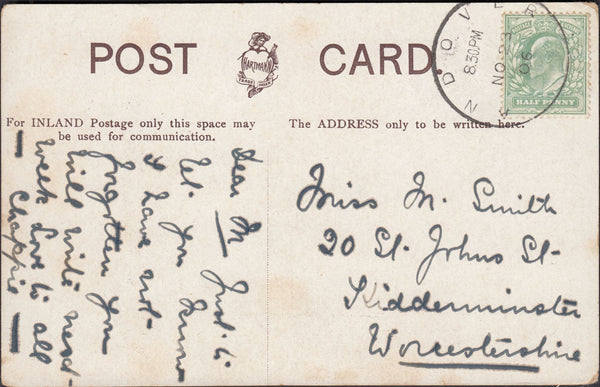 POST CARD.
HARTMANN
DOVER
8.30PM
NO 23
06
N
HALF PENNY
For INLAND Postage only this space may
be used for communication.
The ADDRESS only to be written here.
Dear M Just to
let you know
I have not
forgotten you
will write next
week Love to all
Chappie
Miss M. Smith
20 St. Johns St.
Kidderminster
Worcestershire